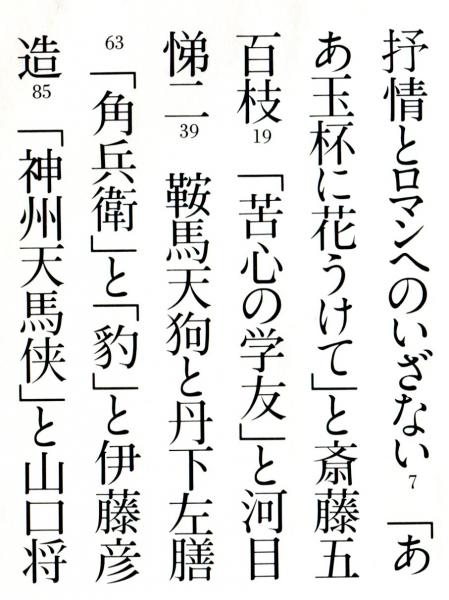 抒情とロマンへのいざない 7 「あ
あ玉杯に花うけて」と斎藤五
百枝 19 「苦心の学友」と河目
悌二 39 鞍馬天狗と丹下左膳
63 「角兵衛」と「豹」と伊藤彦
造 85 「神州天馬侠」と山口将